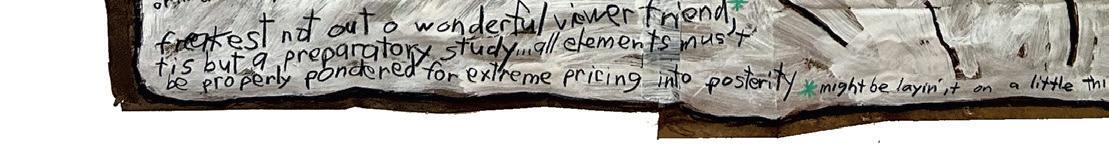 freakest not out o wonderful viewer friend,*
tis but a preparatory study...all elements must
be properly pondered for extreme pricing into posterity *might be layin' it on a little thi